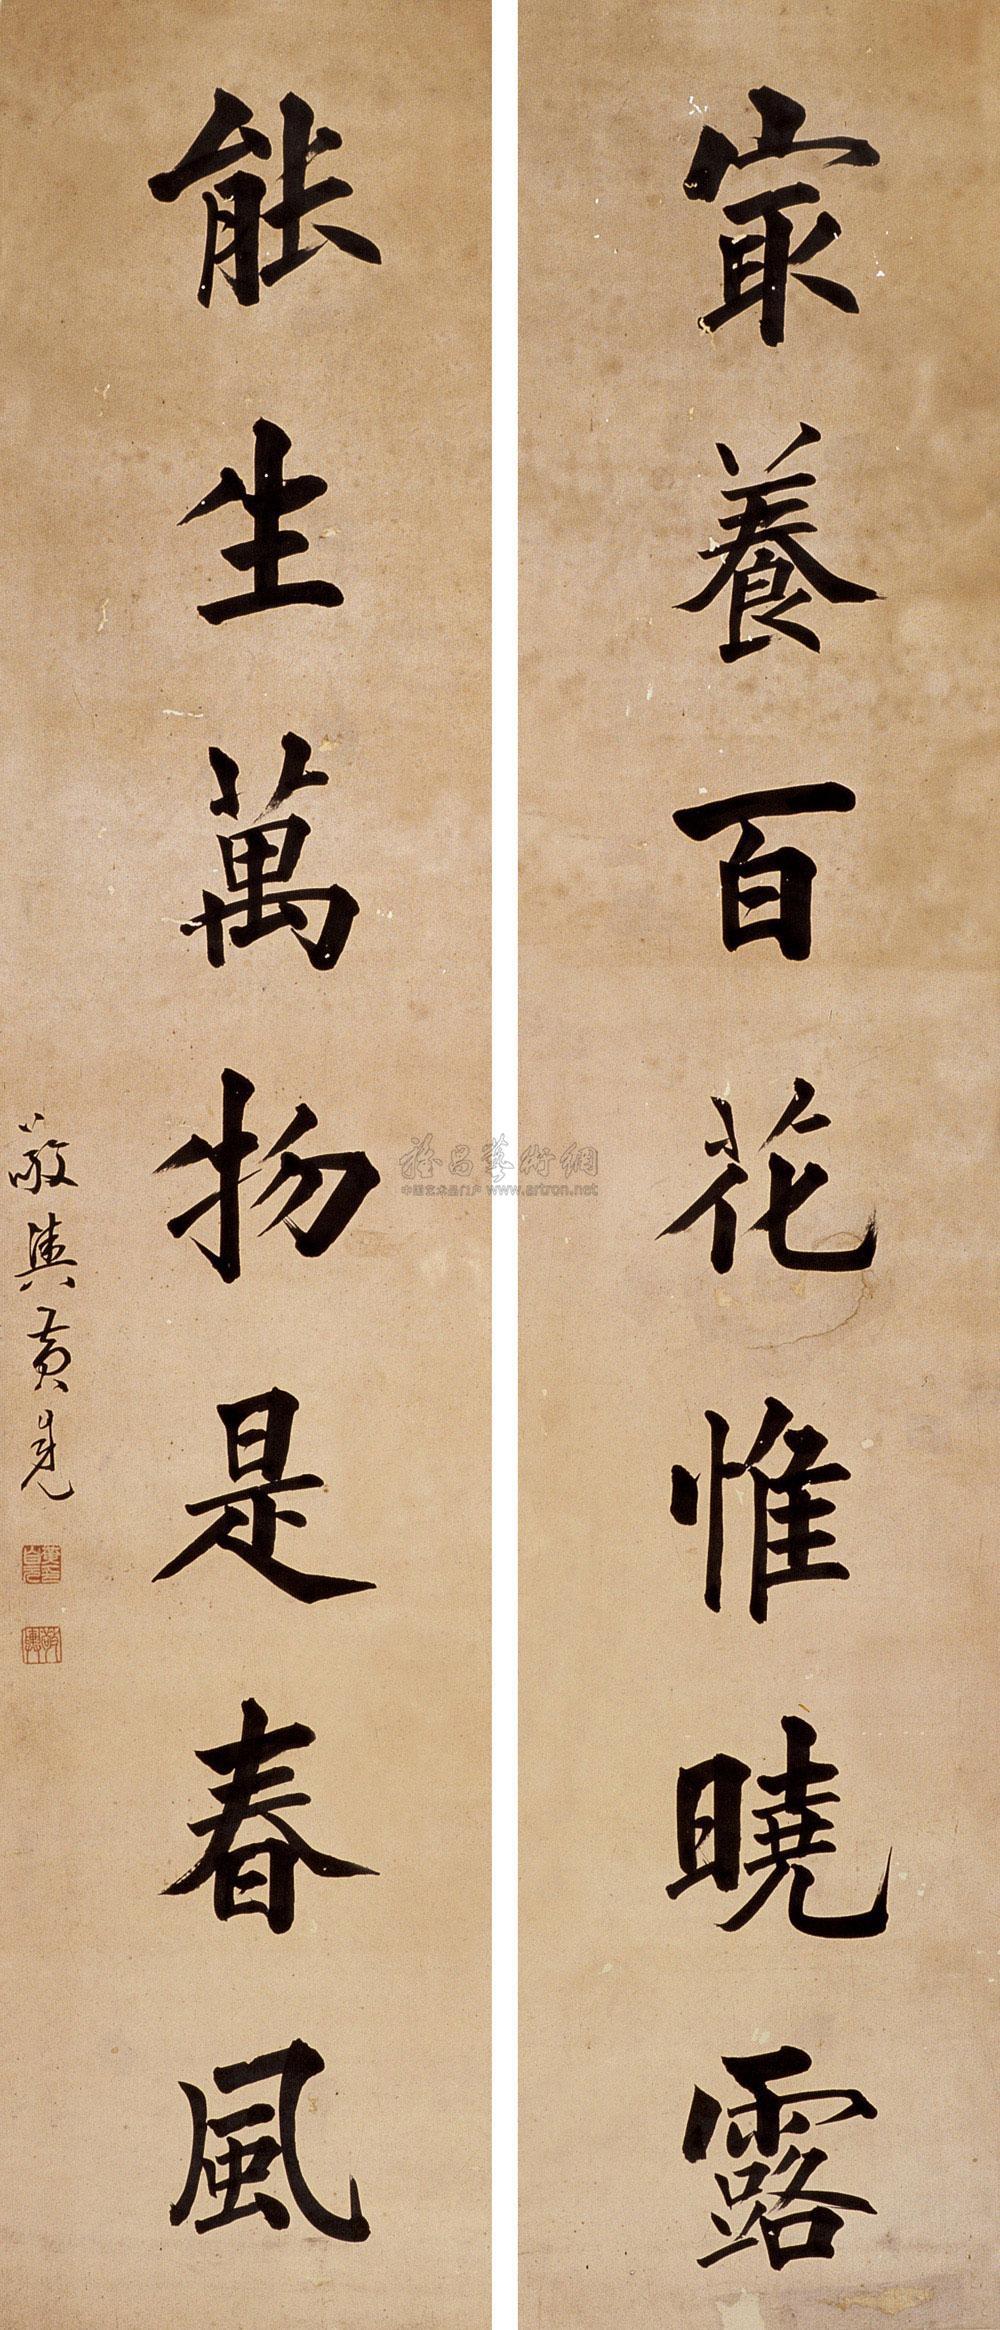 宼養百花惟曉露
能生萬物是春風
敬輿黃自元
雅昌藝術網
中国艺术品门户 www.artron.net